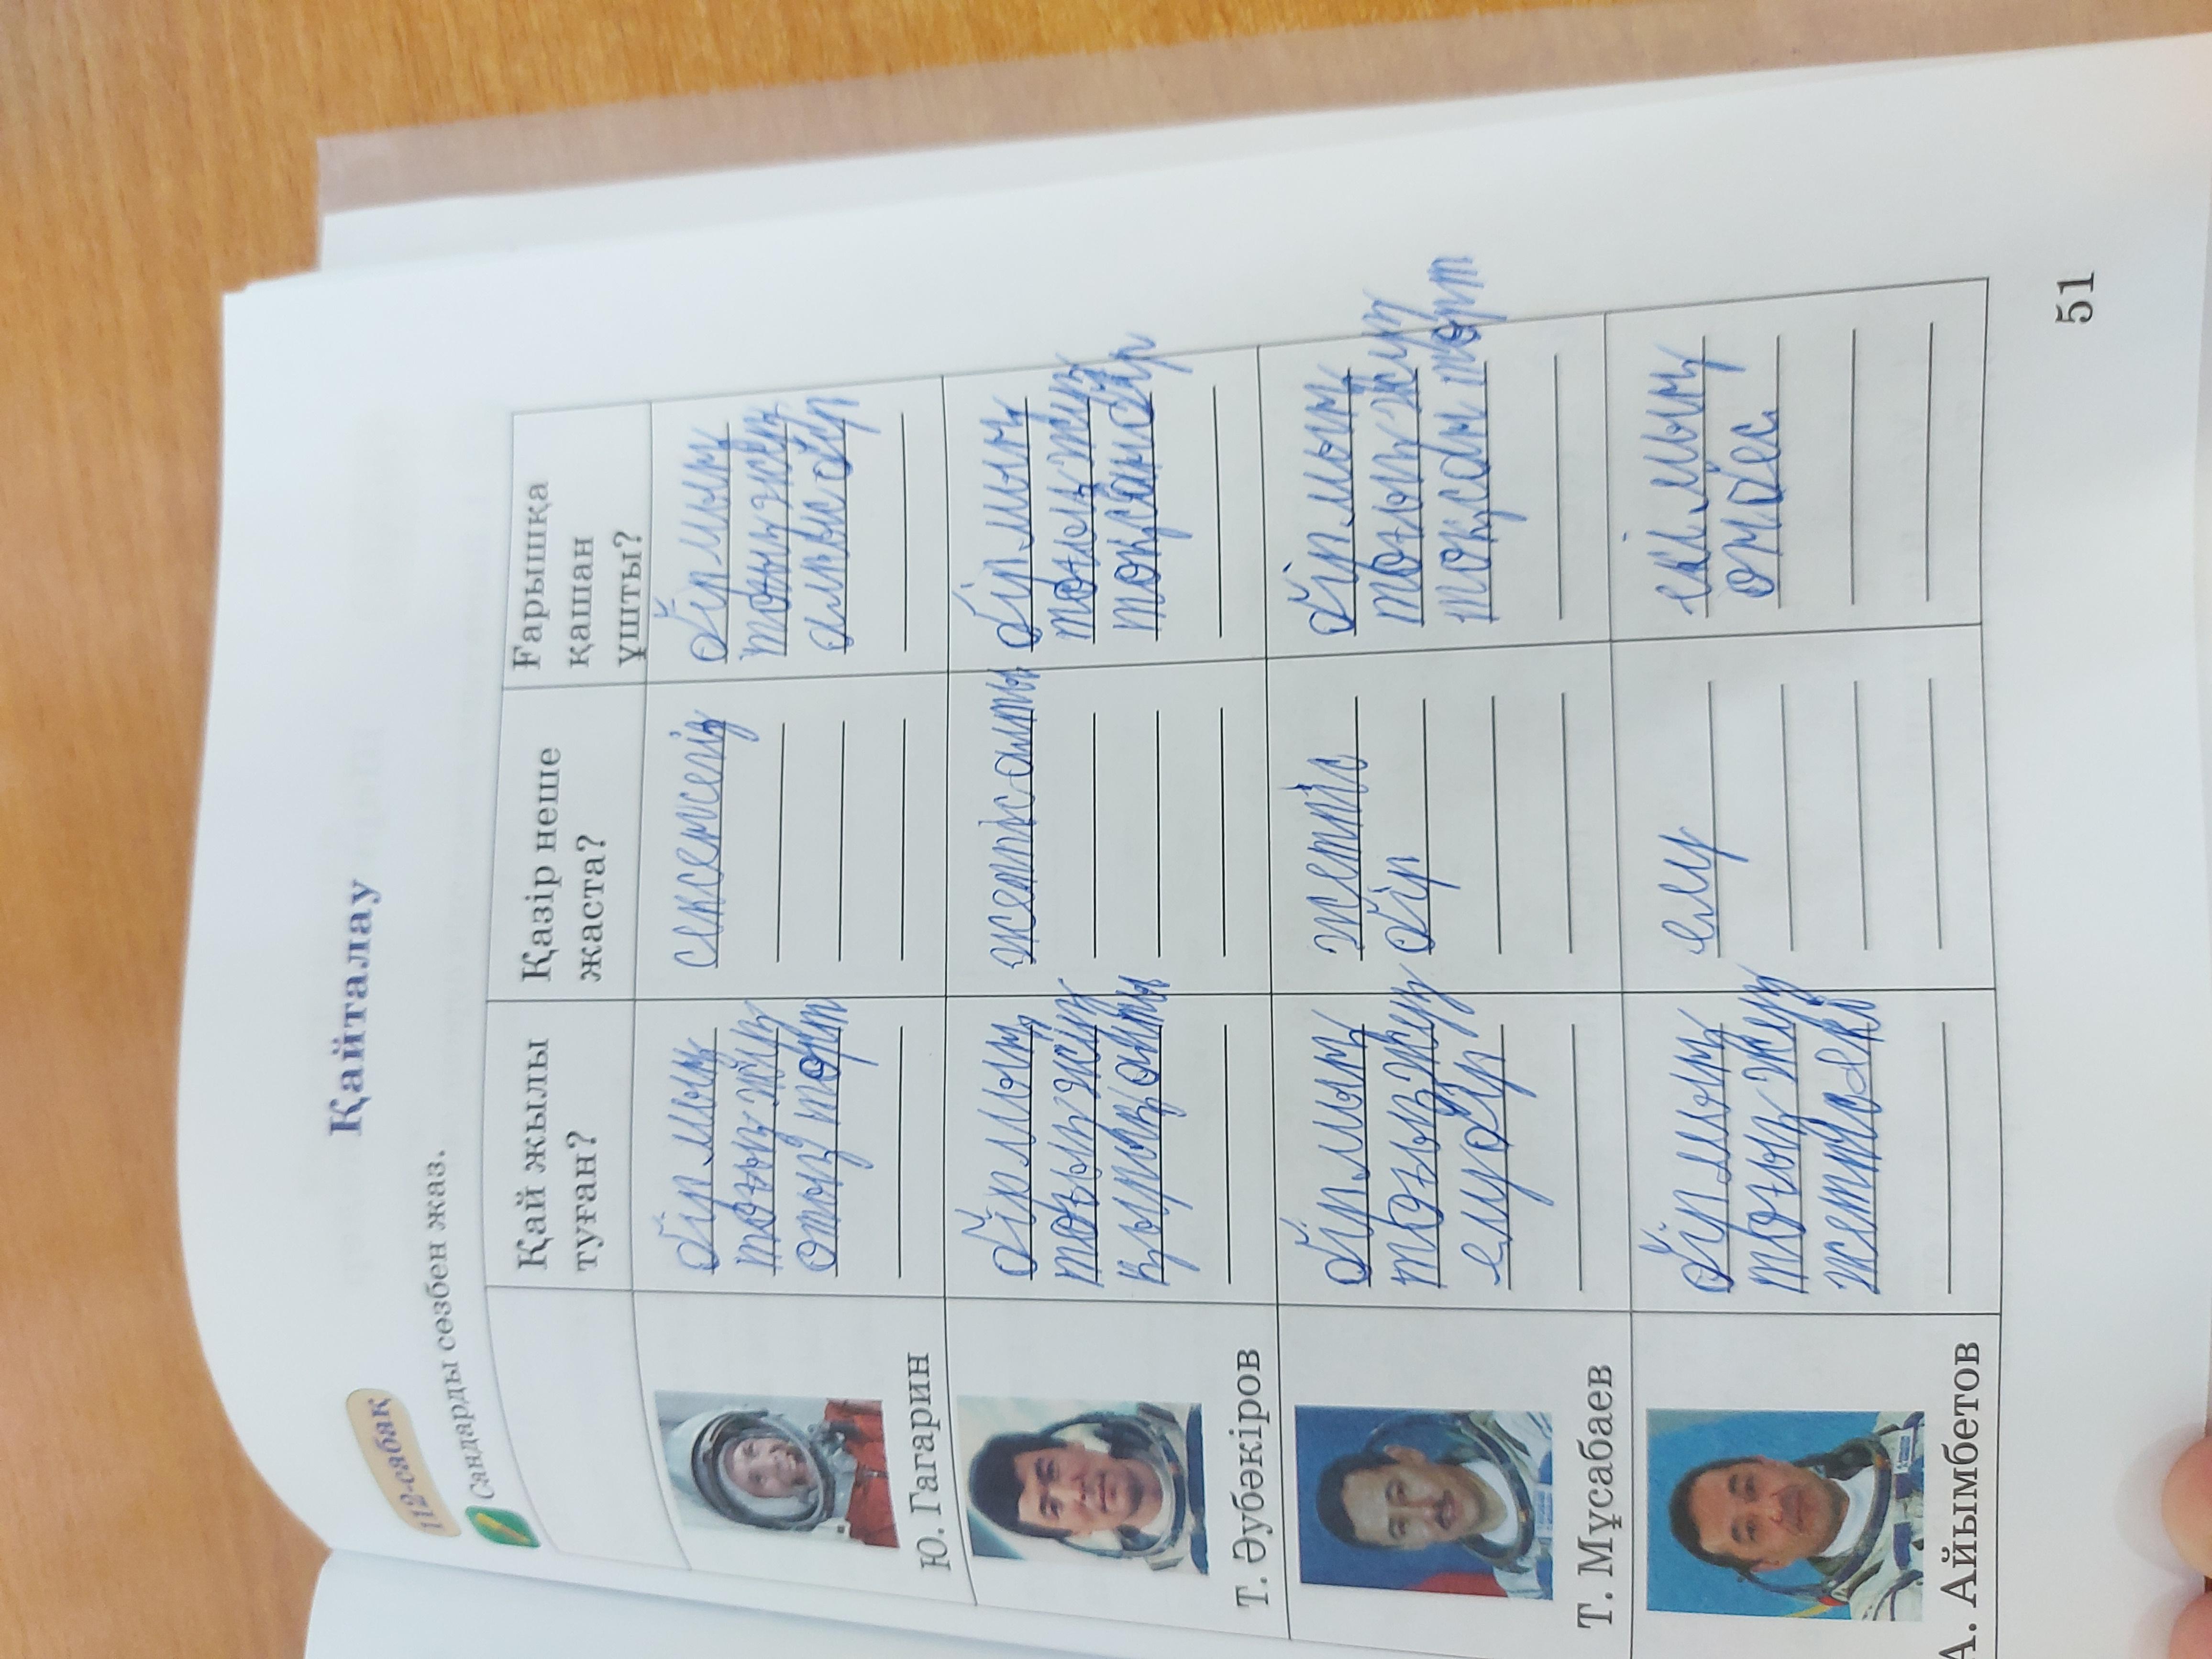 112-сабақ
Қайталау
Сандарды сөзбен жаз.
Қай жылы
туған?
Қазір неше
жаста?
Ғарышқа
қашан
ұшты?
Ю. Гагарин
бір мың
тоғыз жүз
отыз төрт
сексенсегіз
бір мың
тоғыз жүз
алпыс бір
Т. Әубәкіров
бір мың
тоғыз жүз
қырық алты
жетпіс алты
бір мың
тоғыз жүз
тоқсан бір
Т. Мұсабаев
бір мың
тоғыз жүз
елу бір
жетпіс
бір
бір мың
тоғыз жүз
тоқсан төрт
А. Айымбетов
бір мың
тоғыз жүз
жетпіс екі
елу
екі мың
он бес
51